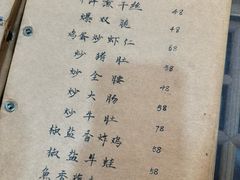 煮干丝 48
爆双脆 48
鸡杂炒虾仁 68
炒猪肚 58
炒全腰 58
炒大肠 48
炒牛肚 58
椒盐香炸鸡 78
椒盐牛蛙 58
鱼香 58